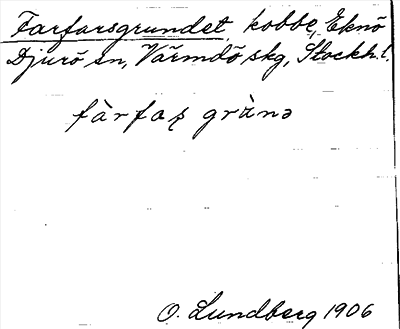 Farfarsgrundet, kobbe, Eknö
Djurö sn, Värmdö skg, Stockh. l.
fàrfaș grànə
O. Lundberg 1906